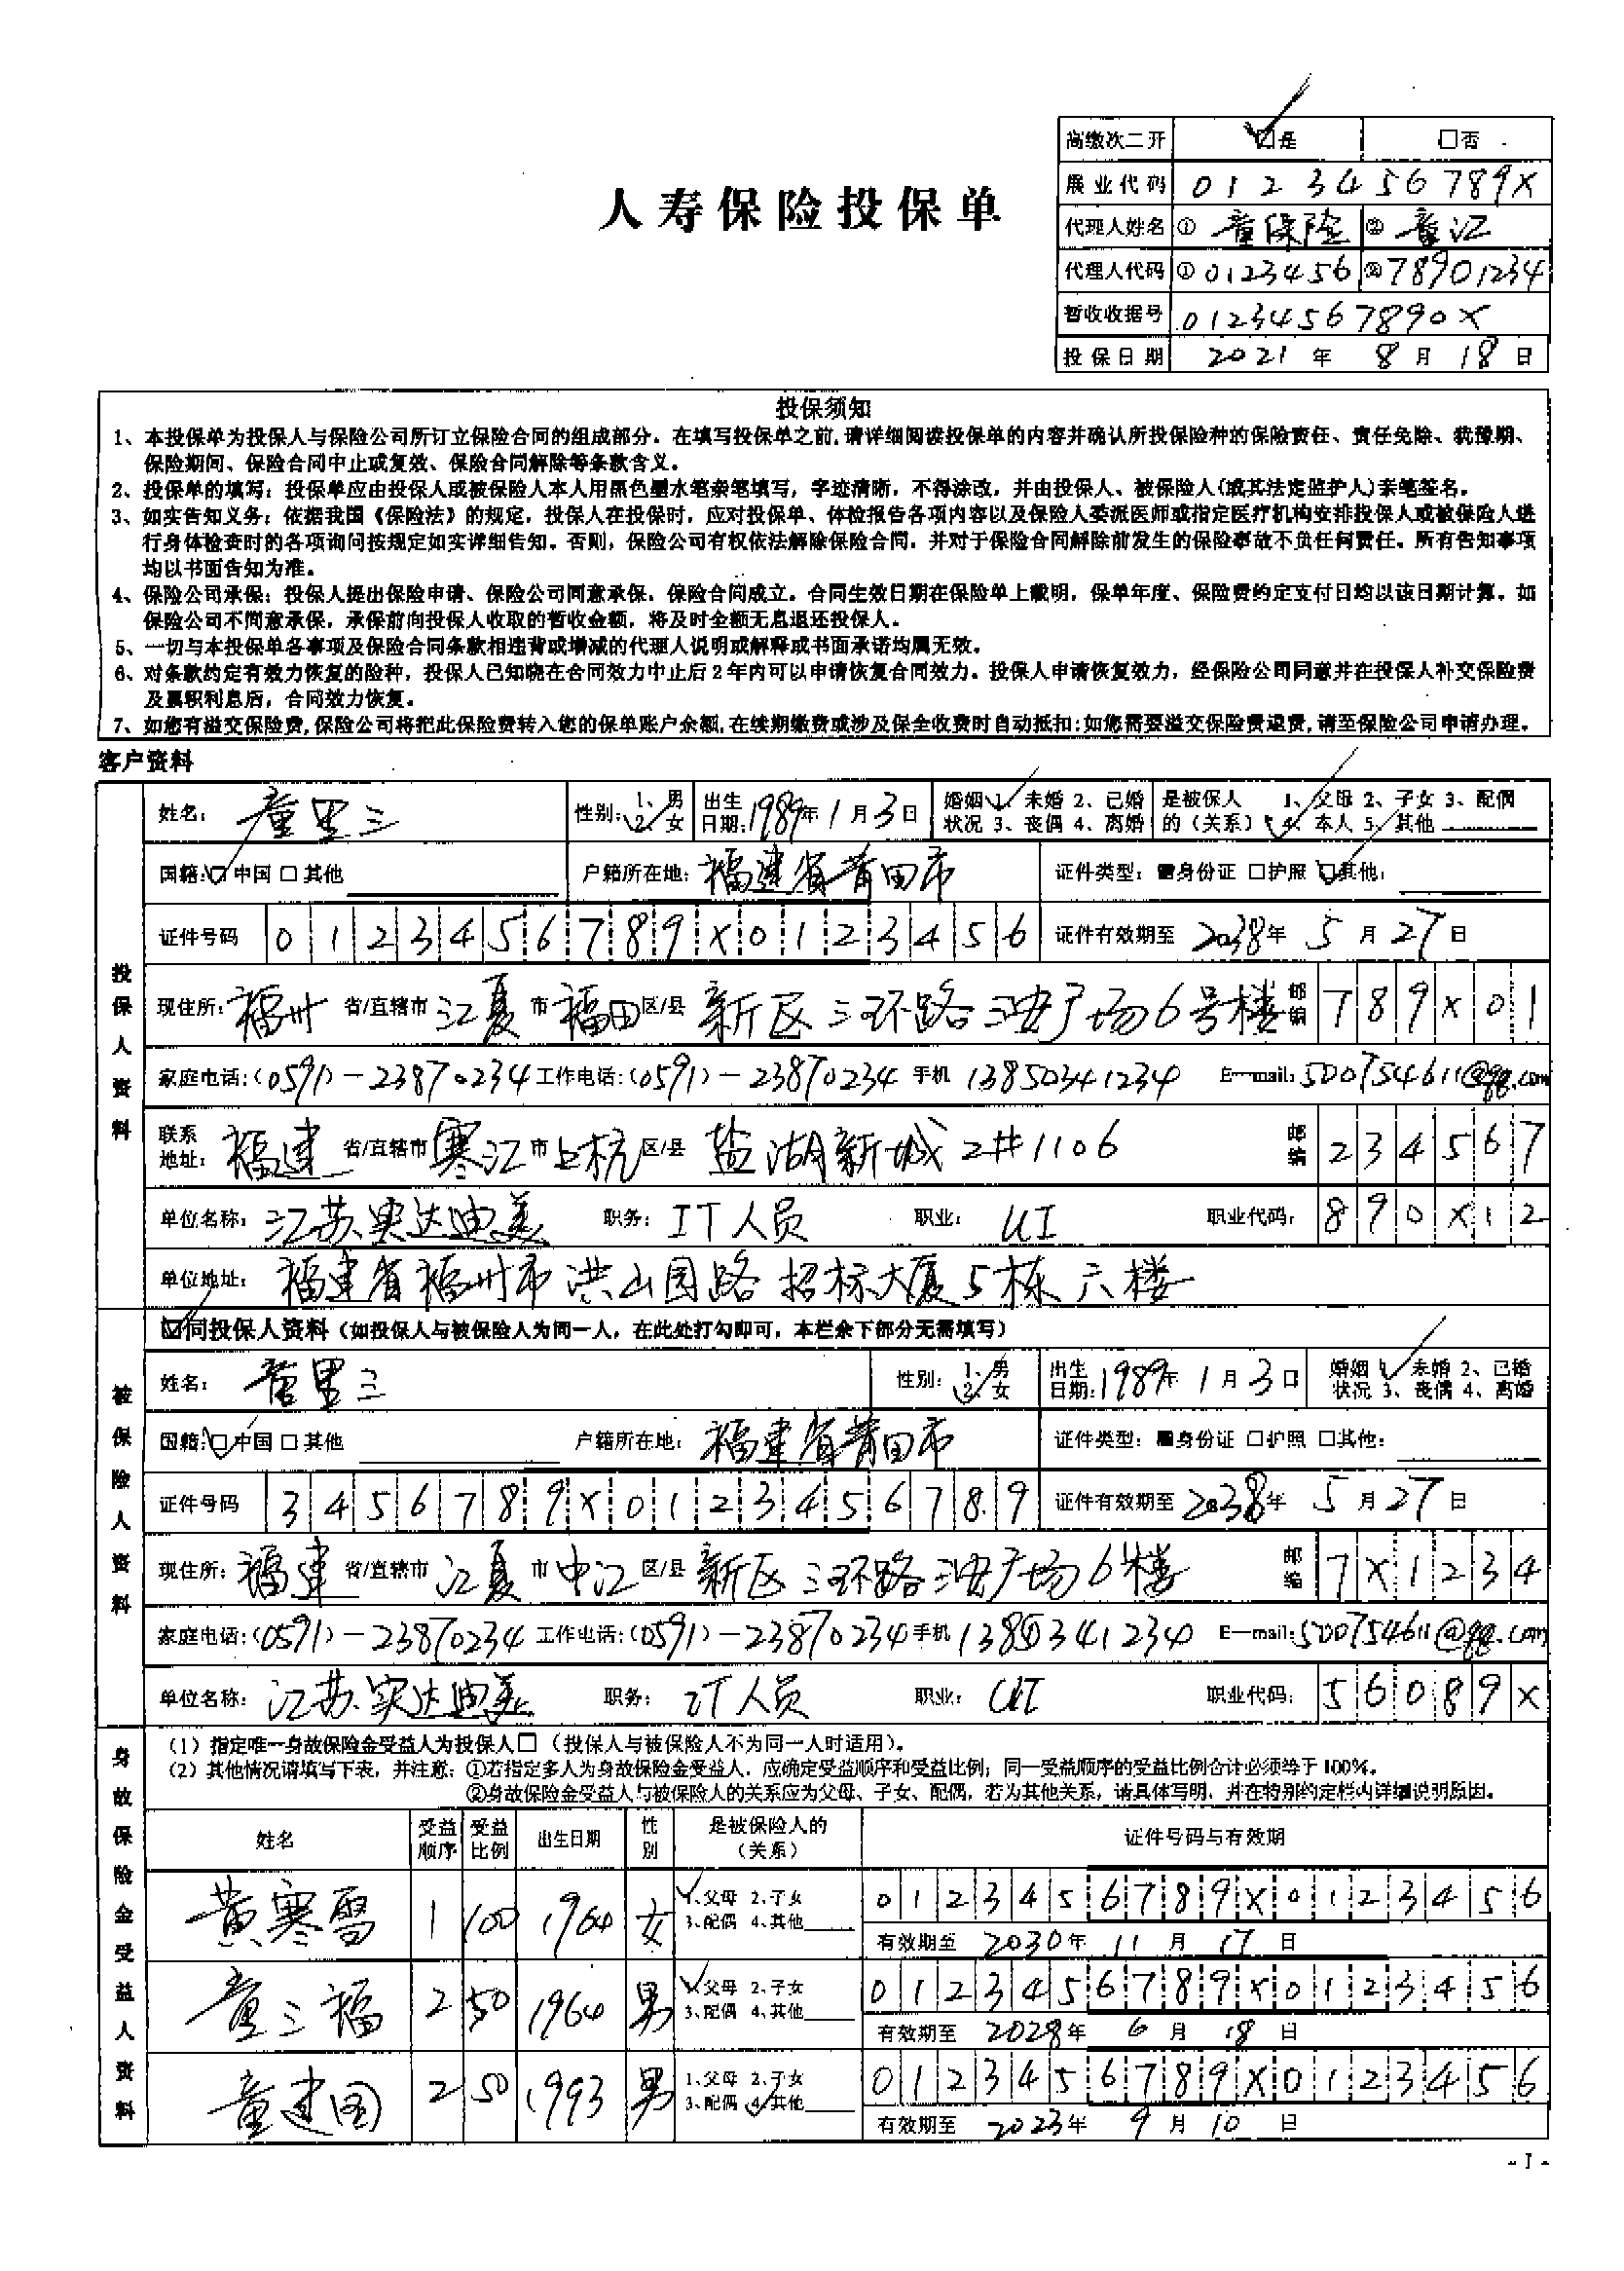 高缴次二开 ☑是 □否
展业代码 0123456789X
人寿保险投保单
代理人姓名 ① 童保险 ② 童江
代理人代码 ① 0123456 ② 78901234
暂收收据号 01234567890X
投保日期 2021 年 8 月 18 日
投保须知
1、本投保单为投保人与保险公司所订立保险合同的组成部分。在填写投保单之前,请详细阅读投保单的内容并确认所投保险种的保险责任、责任免除、犹豫期、
保险期间、保险合同中止或复效、保险合同解除等条款含义。
2、投保单的填写：投保单应由投保人或被保险人本人用黑色墨水笔亲笔填写，字迹清晰，不得涂改，并由投保人、被保险人(或其法定监护人)亲笔签名。
3、如实告知义务：依据我国《保险法》的规定，投保人在投保时，应对投保单、体检报告各项内容以及保险人委派医师或指定医疗机构安排投保人或被保险人进
行身体检查时的各项询问按规定如实详细告知。否则，保险公司有权依法解除保险合同，并对于保险合同解除前发生的保险事故不负任何责任。所有告知事项
均以书面告知为准。
4、保险公司承保：投保人提出保险申请、保险公司同意承保，保险合同成立。合同生效日期在保险单上载明，保单年度、保险费约定支付日均以该日期计算。如
保险公司不同意承保，承保前向投保人收取的暂收金额，将及时全额无息退还投保人。
5、一切与本投保单各事项及保险合同条款相违背或增减的代理人说明或解释或书面承诺均属无效。
6、对条款约定有效力恢复的险种，投保人已知晓在合同效力中止后2年内可以申请恢复合同效力。投保人申请恢复效力，经保险公司同意并在投保人补交保险费
及累积利息后，合同效力恢复。
7、如您有溢交保险费,保险公司将把此保险费转入您的保单账户余额,在续期缴费或涉及保全收费时自动抵扣;如您需要溢交保险费退费,请至保险公司申请办理。
客户资料
投保人资料
姓名： 童里三 性别： 1、男 2、女 出生日期： 1989年 1 月 3 日 婚姻状况 1、未婚 2、已婚 3、丧偶 4、离婚 是被保人的（关系） 1、父母 2、子女 3、配偶 4、本人 5、其他
国籍：☑中国 □其他 户籍所在地： 福建省莆田市 证件类型：■身份证 □护照 ☑其他：
证件号码 0123456789X0123456 证件有效期至 2038年 5 月 27 日
现住所： 福州 省/直辖市 江夏 市 福田 区/县 新区三环路三迪广场6号楼 邮编 789X01
家庭电话：(0591)-23870234 工作电话：(0591)-23870234 手机 13850341234 E—mail：500754611@qq.com
联系地址： 福建 省/直辖市 寒江 市 上杭 区/县 盐湖新城2#1106 邮编 234567
单位名称： 江苏实达迪美 职务： IT人员 职业： UI 职业代码： 890X12
单位地址： 福建省福州市洪山园路招标大厦5栋六楼
被保险人资料
☑同投保人资料（如投保人与被保险人为同一人，在此处打勾即可，本栏余下部分无需填写）
姓名： 童里三 性别： 1、男 2、女 出生日期： 1989年 1 月 3 日 婚姻状况 1、未婚 2、已婚 3、丧偶 4、离婚
国籍：☑中国 □其他 户籍所在地： 福建省莆田市 证件类型：■身份证 □护照 □其他：
证件号码 3456789X0123456789 证件有效期至 2038年 5 月 27 日
现住所： 福建 省/直辖市 江夏 市 中江 区/县 新区三环路三迪广场6楼 邮编 7X1234
家庭电话：(0591)-23870234 工作电话：(0591)-23870234 手机 13850341234 E—mail：500754611@qq.com
单位名称： 江苏实达迪美 职务： IT人员 职业： UI 职业代码： 56089X
身故保险金受益人资料
（1）指定唯一身故保险金受益人为投保人□（投保人与被保险人不为同一人时适用）。
（2）其他情况请填写下表，并注意：①若指定多人为身故保险金受益人，应确定受益顺序和受益比例；同一受益顺序的受益比例合计必须等于100%。
②身故保险金受益人与被保险人的关系应为父母、子女、配偶，若为其他关系，请具体写明，并在特别约定栏内详细说明原因。
姓名 受益顺序 受益比例 出生日期 性别 是被保险人的（关系） 证件号码与有效期
黄寒雪 1 100 1964 女 1、父母 2、子女 3、配偶 4、其他 0123456789X0123456
有效期至 2030年 11 月 17 日
童三福 2 50 1964 男 1、父母 2、子女 3、配偶 4、其他 0123456789X0123456
有效期至 2028年 6 月 18 日
童建国 2 50 1993 男 1、父母 2、子女 3、配偶 4、其他 0123456789X0123456
有效期至 2023年 9 月 10 日
- 1 -